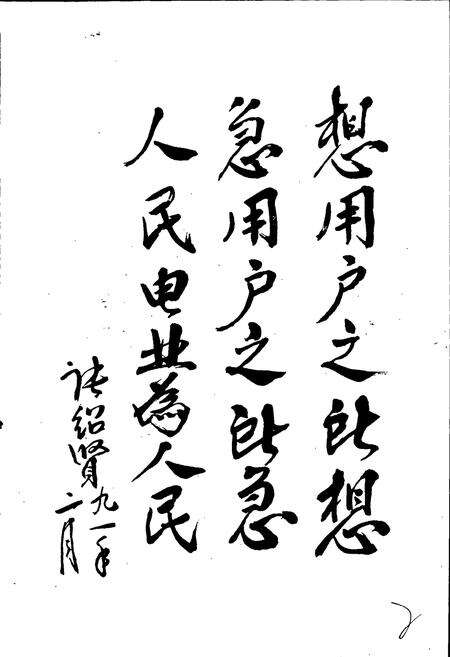 想用户之所想
急用户之所急
人民电业为人民
张绍贤九一年
二月
2